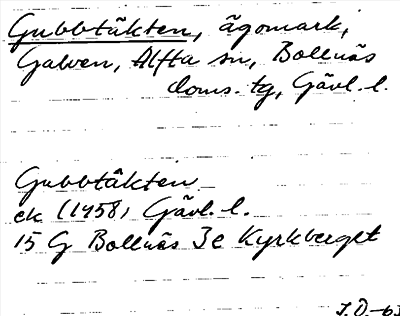 Gubbtäkten, ägomark,
Galven, Alfta sn, Bollnäs
doms. tg, Gävl. l.
Gubbtäkten
ek (1958) Gävl. l.
15 G Bollnäs 3e Kyrkberget
J.Ö-63